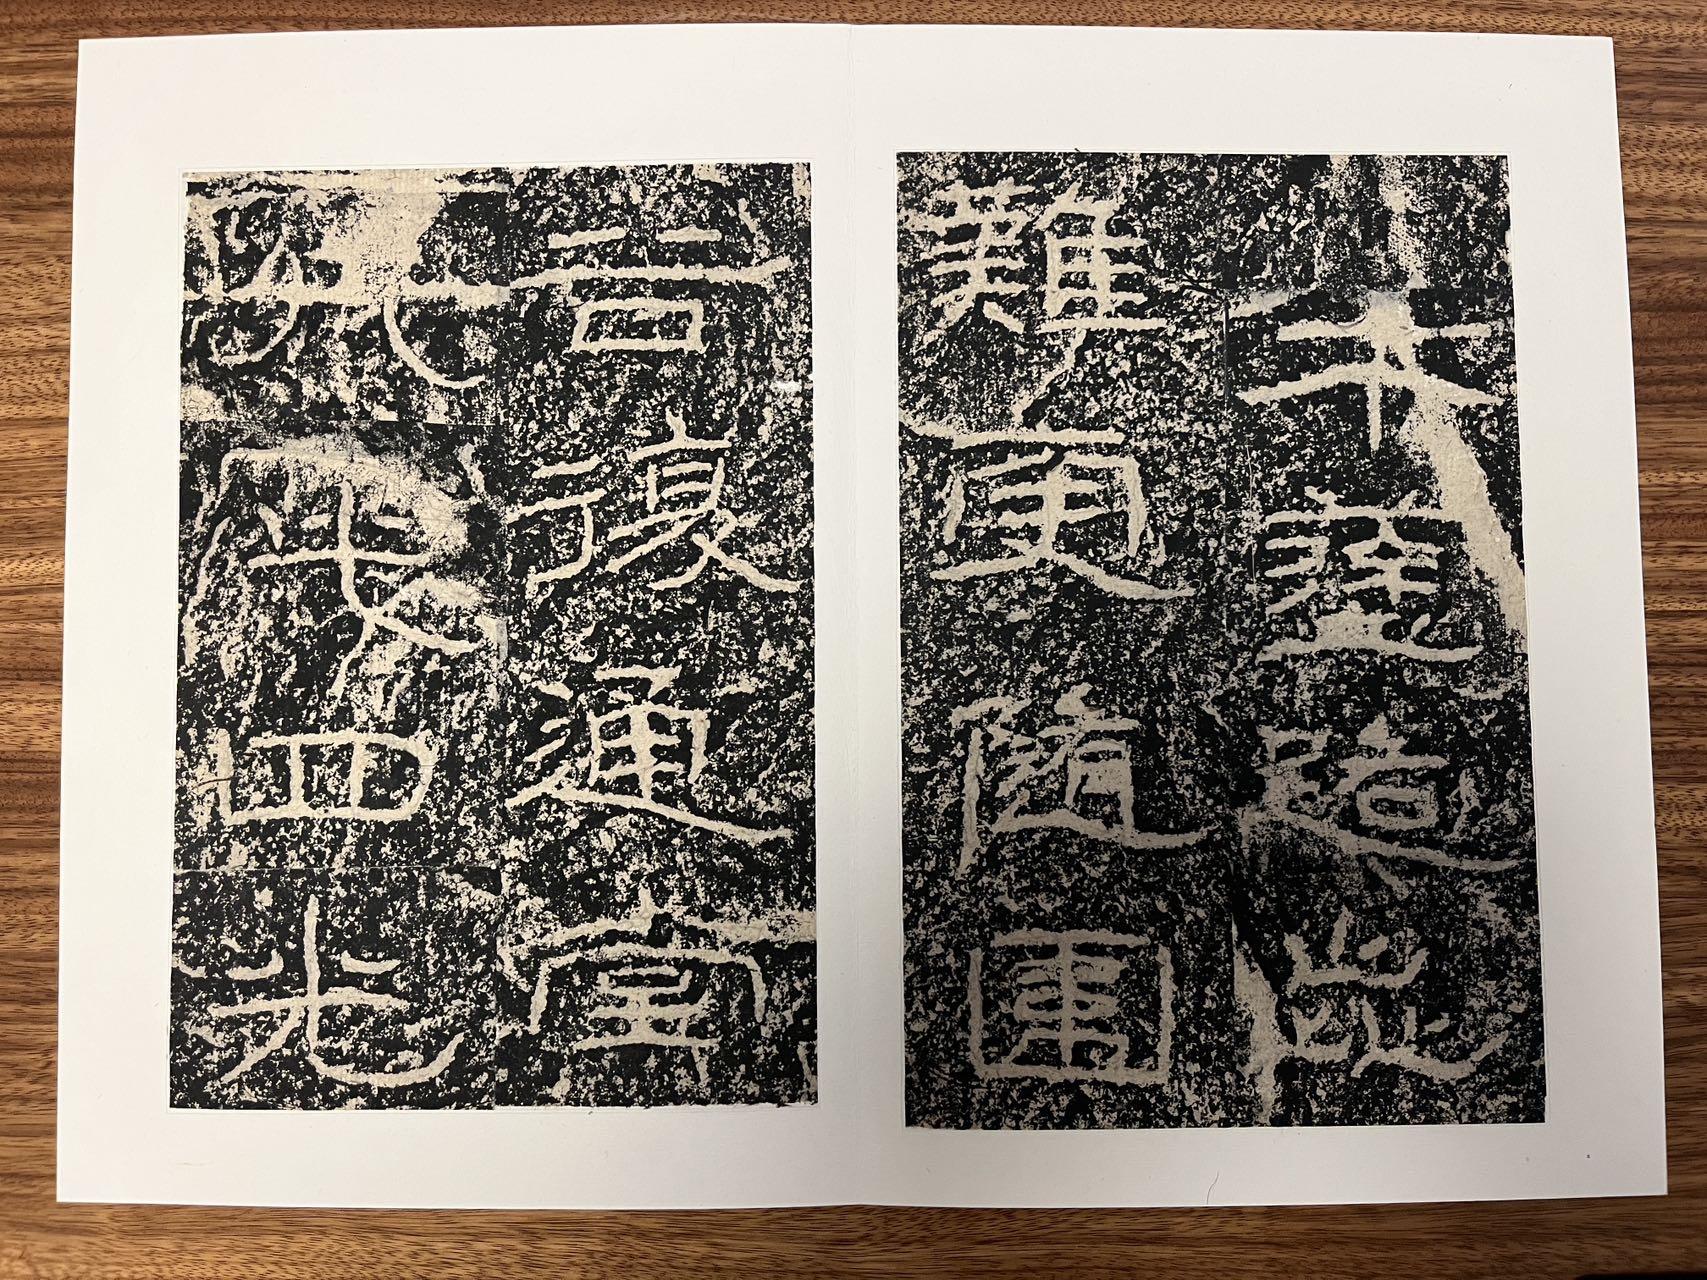 午塗路歰
難更隨圍
谷復通堂
凡四光